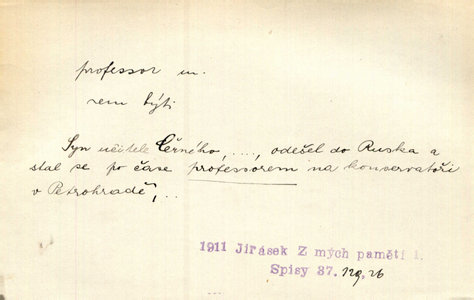 professor m.
rem býti
Syn učitele Černého, ..., odešel do Ruska a
stal se po čase professorem na konservatoři
v Petrohradě, ..
1911 Jirásek Z mých pamětí 1.
Spisy 37. 129, 26